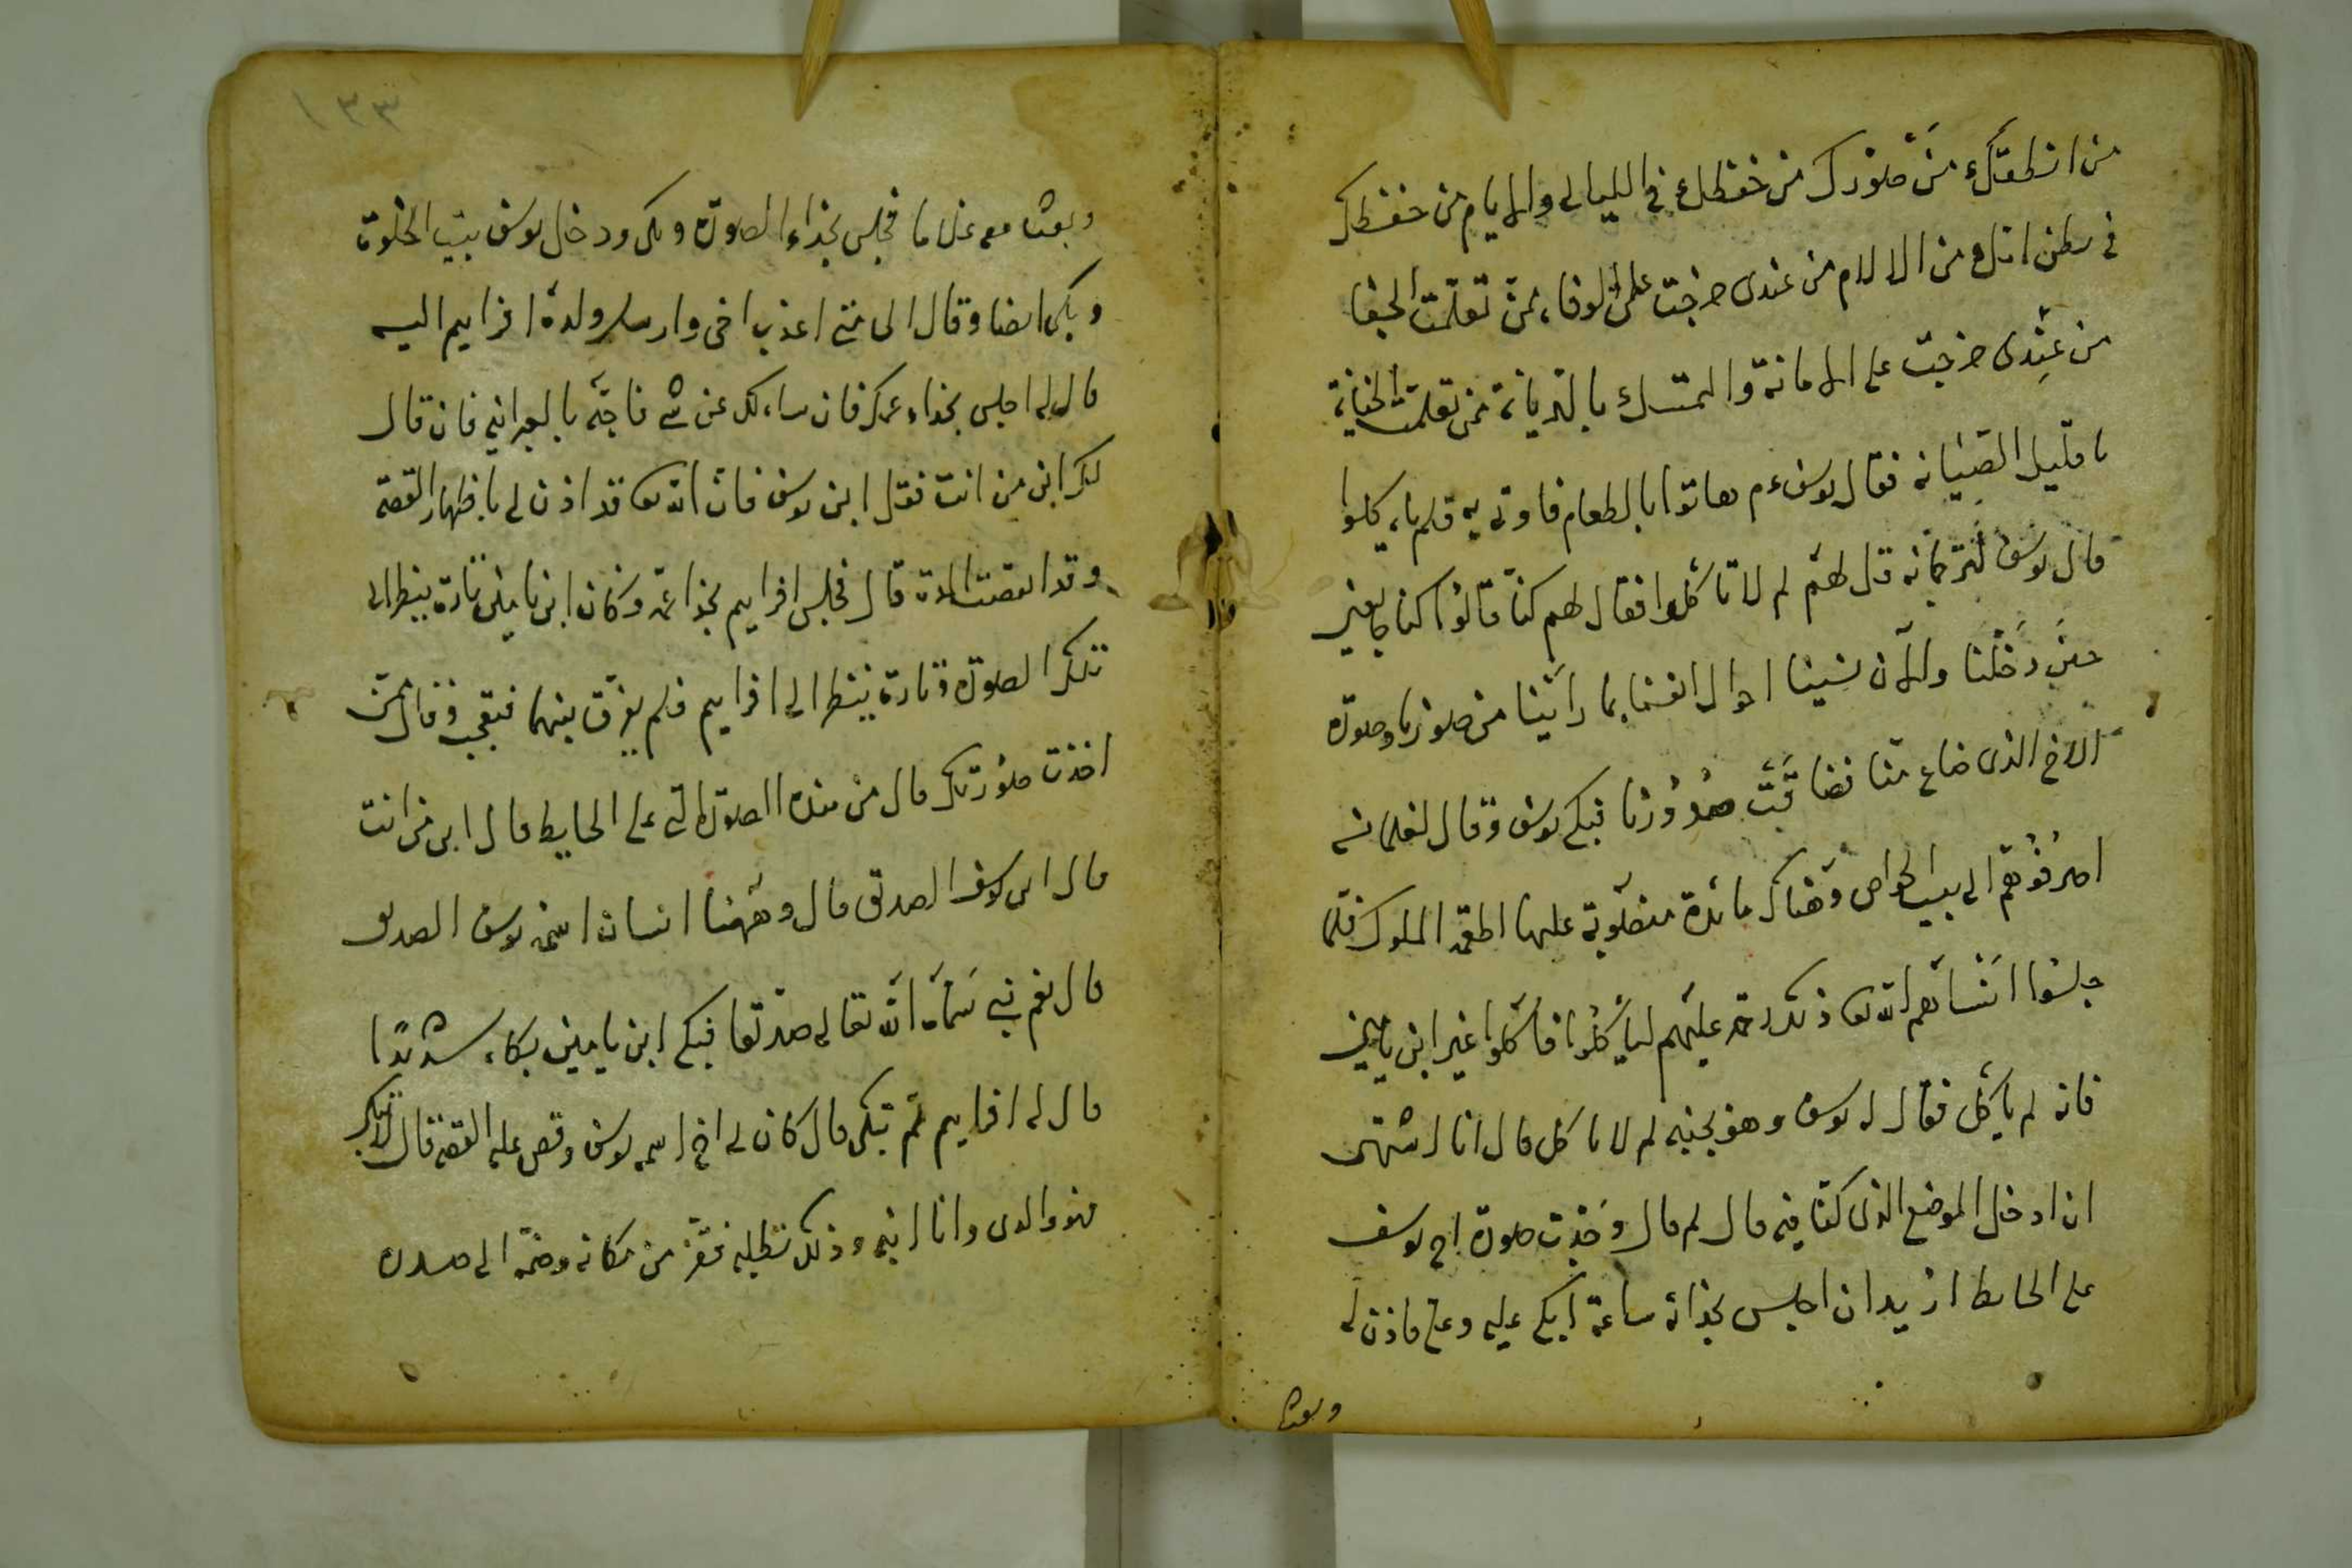 من انطقك من صورك من حفظك في الليالي والايام من حفظك
في بطن امك من الالام من عندى خرجت على الوفا، ممن تعلمت الجفا
من عندى خرجت على الامانة والتمسك بالديانة ممن تعلمت الخيانة
يا قليل الصيانه فقال يوسف ءم هاتوا بالطعام فاوتى به فلم ياءكلوا
قال يوسف لترجمانه قل لهم لم لا تاكلوا فقال لهم كنا قالوا كنا جايعين
حين دخلنا والان نسينا احوال انفسنا بما راينا من صورنا وصورة
الاخ الذى ضاع منا فضاقت صدورنا فبكى يوسف وقال لغلمانه
اصرفوهم الى بيت الخواص وهناك مائدة منصوبة عليها اطعمة الملوك فلما
جلسوا انساهم الله تع ذلك رحمة عليهم لياكلوا فاكلوا غير ابن يامين
فانه لم ياكل فقال له يوسف وهو بجنبه لم لا تاكل قال انا اشتهى
ان ادخل الموضع الذى كنا فيه قال لم قال وجدت صورة اخى يوسف
على الحايط اريد ان اجلس بحذائه ساعة ابكى عليه وعلى فاذن له
وبعث
١٣٣
وبعث معه غلاما فجلس بحذاء الصورة وبكى ودخل يوسف بيت الخلوة
وبكى ايضا وقال الى متى اعذب اخى وارسل ولده افرايم اليه
قال له اجلس بحذاء عمك فان ساءلك عن شى فاجبه بالعبرانيه فان قال
لك ابن من انت فقل ابن يوسف فان الله تع قد اذن لى باظهار القصة
وقد انقضت المدة قال فجلس افرايم بحذا عمه وكان ابن يامين تارة ينظر الى
تلك الصورة وتارة ينظر الى افرايم فلم يفرق بينهما فتعجب وقال ممن
اخذت صورتك قال من هذه الصورة التى على الحايط قال ابن من انت
قال ابن يوسف الصديق قال وههنا انسان اسمه يوسف الصديق
قال نعم نبى سماه الله تعالى صديقا فبكى ابن يامين بكاء شديدا
قال له افرايم لم تبكى قال كان لى اخ اسمه يوسف وقص عليه القصة قال لا تبك
فهو والدى وانا ابنه وذلك تطلبه فقفز من مكانه وضمه الى صدره